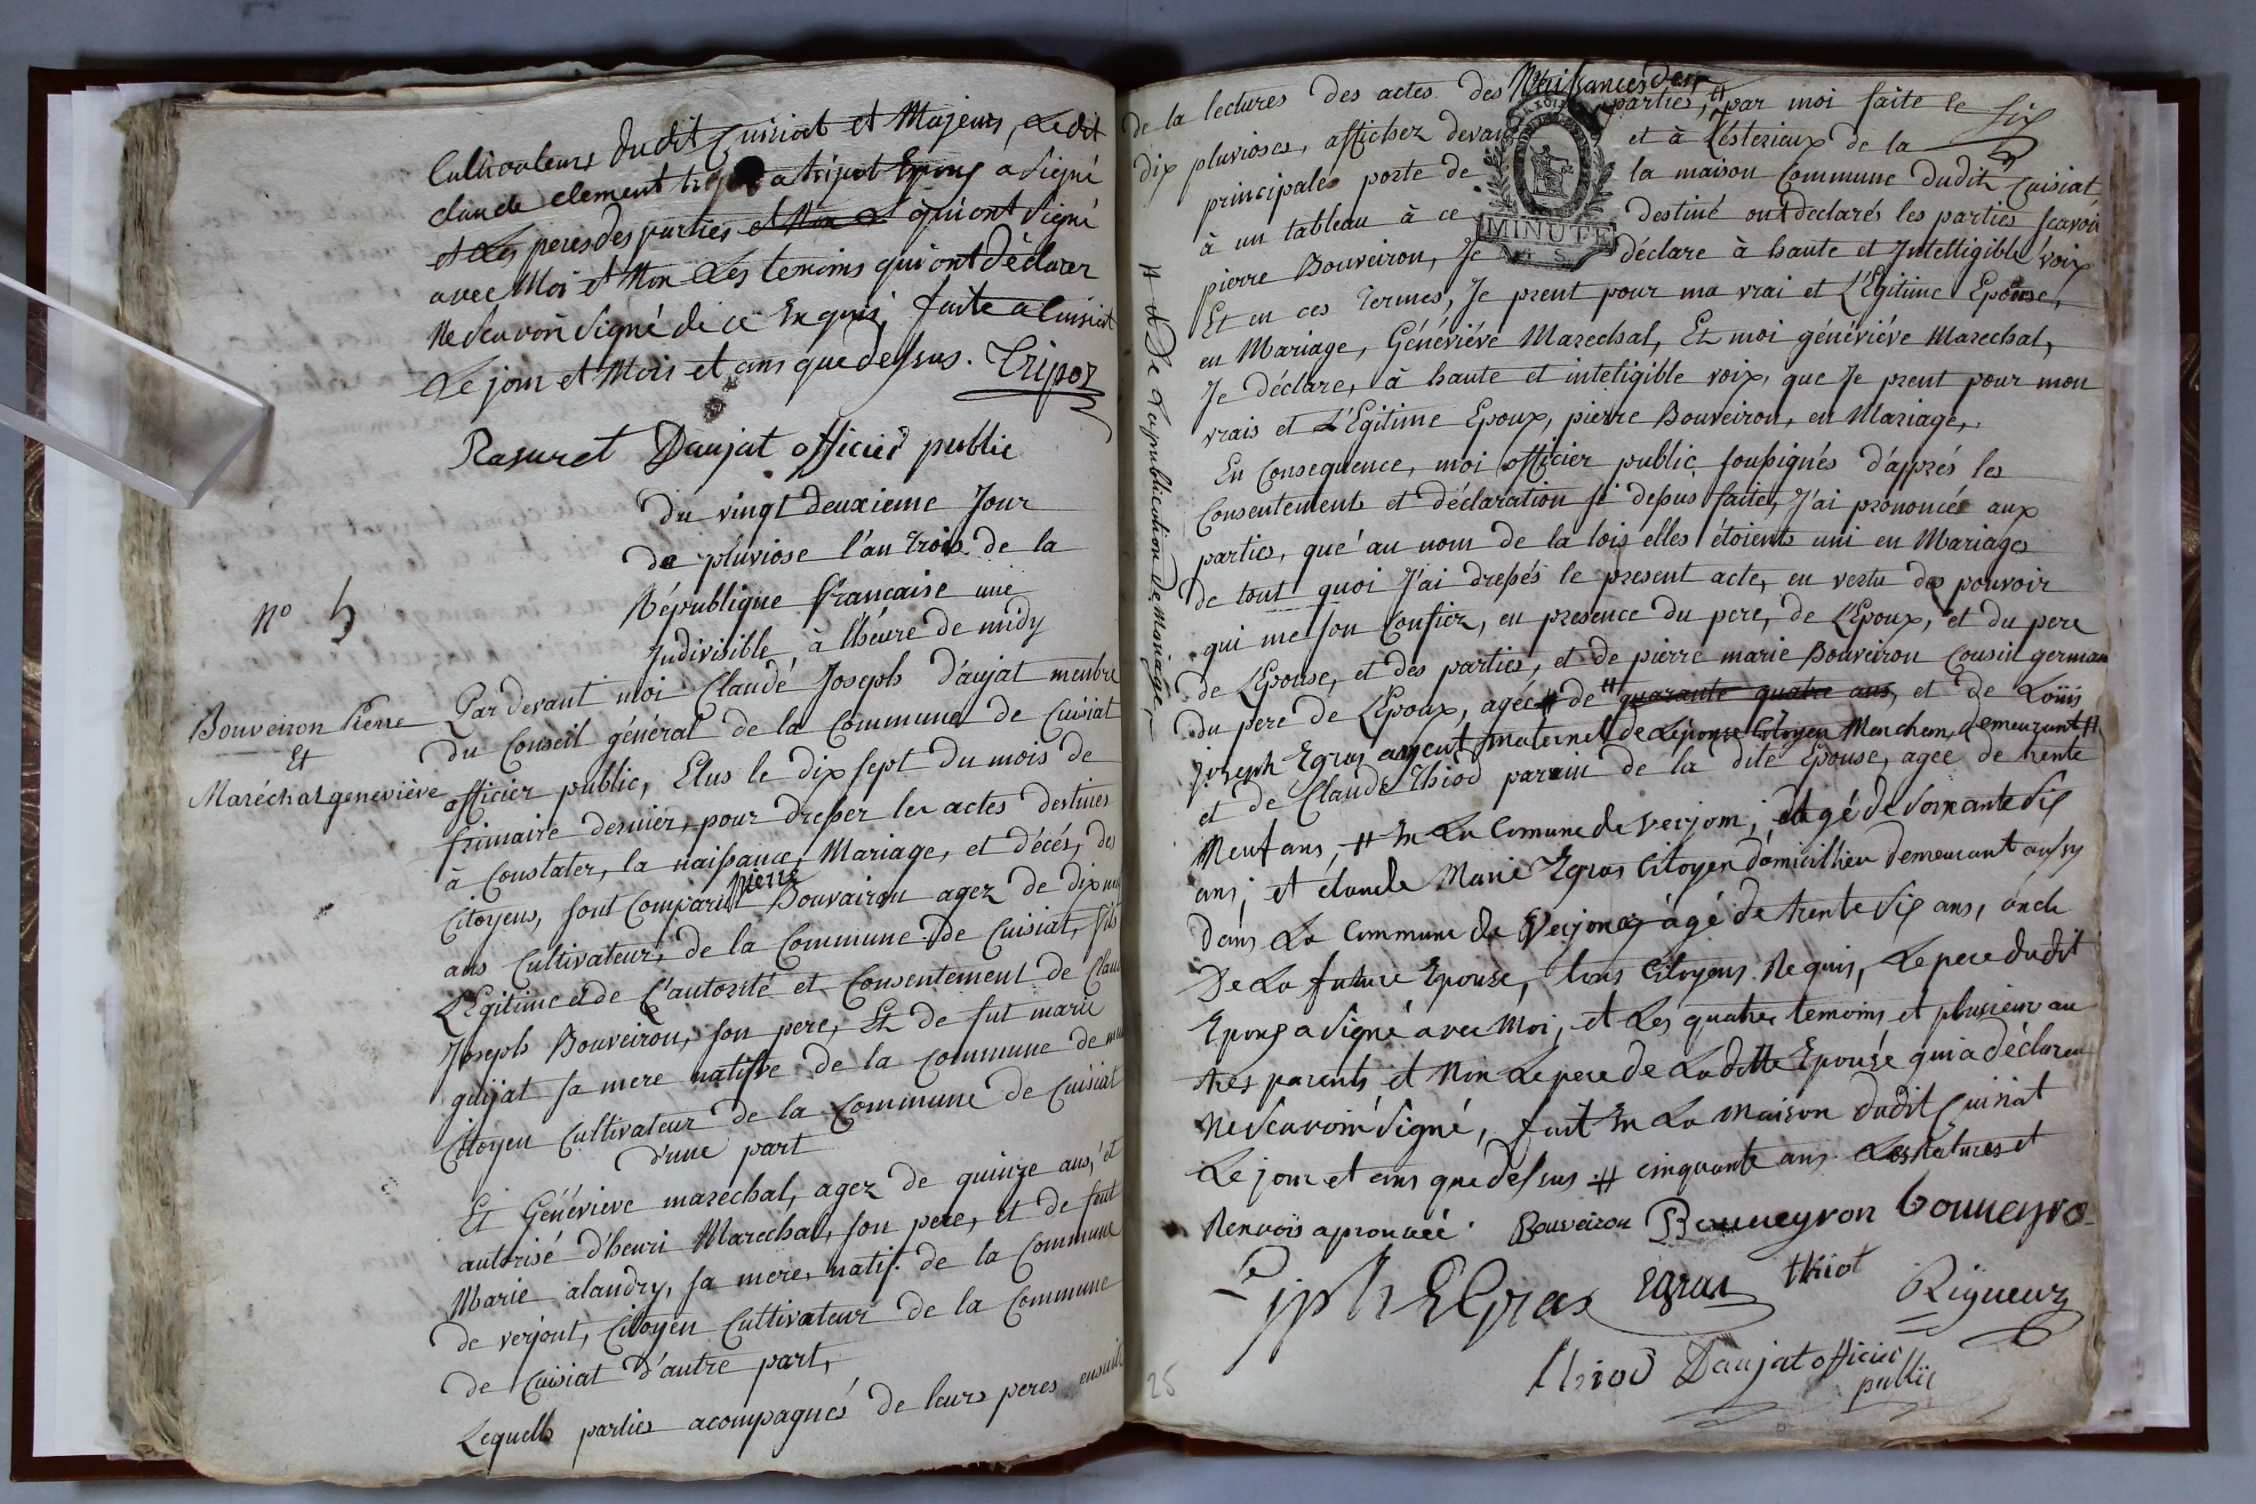 Cultivateurs dudit Cuisiat et Majeurs, Ledit
claude clement a tripot Epoux a Signé
et Les peres des parties et Non L qui ont Signé
avec Moi et Non Les temoins qui ont Déclarer
Ne Scavoir Signé de ce Enquis, faite a Cuisiat
Le jour et Mois et ans que dessus. Tripoz
Rasuret Daujat officier public
du vingt deuxieme Jour
de pluviose l'an trois de la
République francaise une
Indivisible, à l'héure de midy
n° 5
Bouveiron Pierre
Et
Maréchal geneviève
Par devant moi Claude Joseph d'aujat menbre
du Conseil général de la Commune de Cuisiat
officier public, Elus le dix sept du mois de
frimaire dernier, pour dresser les actes destines
à Constater, la naissance, Mariage, et décés, des
Citoyens, sont Comparut pierre Bouvairon agez de dix neuf
ans Cultivateur, de la Commune de Cuisiat, fils
L'Egitime et de L'autorité et Consentement de Claude
Joseph Bouveiron, son pere, Et de fut marie
guijat sa mere natifve de la commune de
Citoyen Cultivateur de la Commune de Cuisiat
d'une part
Et Généviéve marechal, agez de quinze ans, et
autorisé d'henri Marechal, son pere, et de feut
Marie alandry, sa mere, natif de la Commune
de verjont, Citoyen Cultivateur de la Commune
de Cuisiat d'autre part,
Lequells parties acompagnés de leurs peres ensuite
de la lectures des actes des Naissances des parties, # par moi faite le six
dix pluvioses, affichez devant et à L'ésterieux de la
principales porte de la maison Commune dudit Cuisiat
à un tableau à ce destiné ont declarés les parties scavoir
MINUTE
pierre Bouveiron, Je déclare à haute et Intelligible voix
Et en ces termes, Je prent pour ma vrai et L'Egitime Epouse,
en Mariage, Généviéve Marechal, Et moi généviéve Marechal,
Je déclare, à haute et inteligible voix, que Je prent pour mon
vrais et L'Egitime Epoux, pierre Bouveiron, en Mariage,
En Consequence, moi officier public soussignés d'apprés les
Consentement et déclaration si dessus faite, J'ai prononcée aux
parties, que au nom de la lois elles étoients uni en Mariages
de tout quoi J'ai dressés le present acte, en vertu des pouvoir
qui me son Confiez, en presence du pere, de L'Epoux, et du pere
de L'Epouse, et des parties, et de pierre marie Bouveiron Cousin germain
du pere de L'Epoux, agée # de # quarante quatre ans, et de Loüis
joseph Egras ayeut maternel de Lépouse Citoyen Marchem, demeurant #
et de Claude Thiod parrain de la dite Epouse, agee de trente
Neuf ans, # En La Comune de verjom; et agé de Soixante Six
ans; et claude Marie Egras Citoyen domicillieu demeurant ausy
dans La Commune de Verjonez àgé de trente Six ans, oncle
De La future Epouse, tous Citoyens Requis, Le pere dudit
Epoux a Signé avec Moi, et Les quatres temoins et plusieur au
tres parents et Non Le pere de Laditte Epouse qui a déclarer
Ne Scavoir Signé, fait En La Maison dudit Cuisiat
Le jour et ans que dessus # cinquante ans. Les Ratures et
Renvois aprouvéé. Bouveiron Bouveyron bouveyro
jph Egras Egras thiot Rigueur
thiod Daujat officier
public
# et De La publication De Mariage,
25